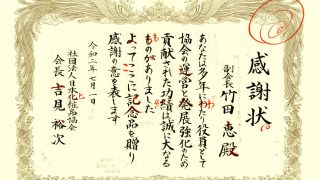 感謝状
副会長
竹田恵殿
あなたは多年にわたり役員として
協会の運営と発展強化のため
貢献された功績は誠に大なる
ものがありました
よってここに記念品を贈り
感謝の意を表します
令和二年七月一日
社団法人日本化粧品協会
会長 吉見裕次